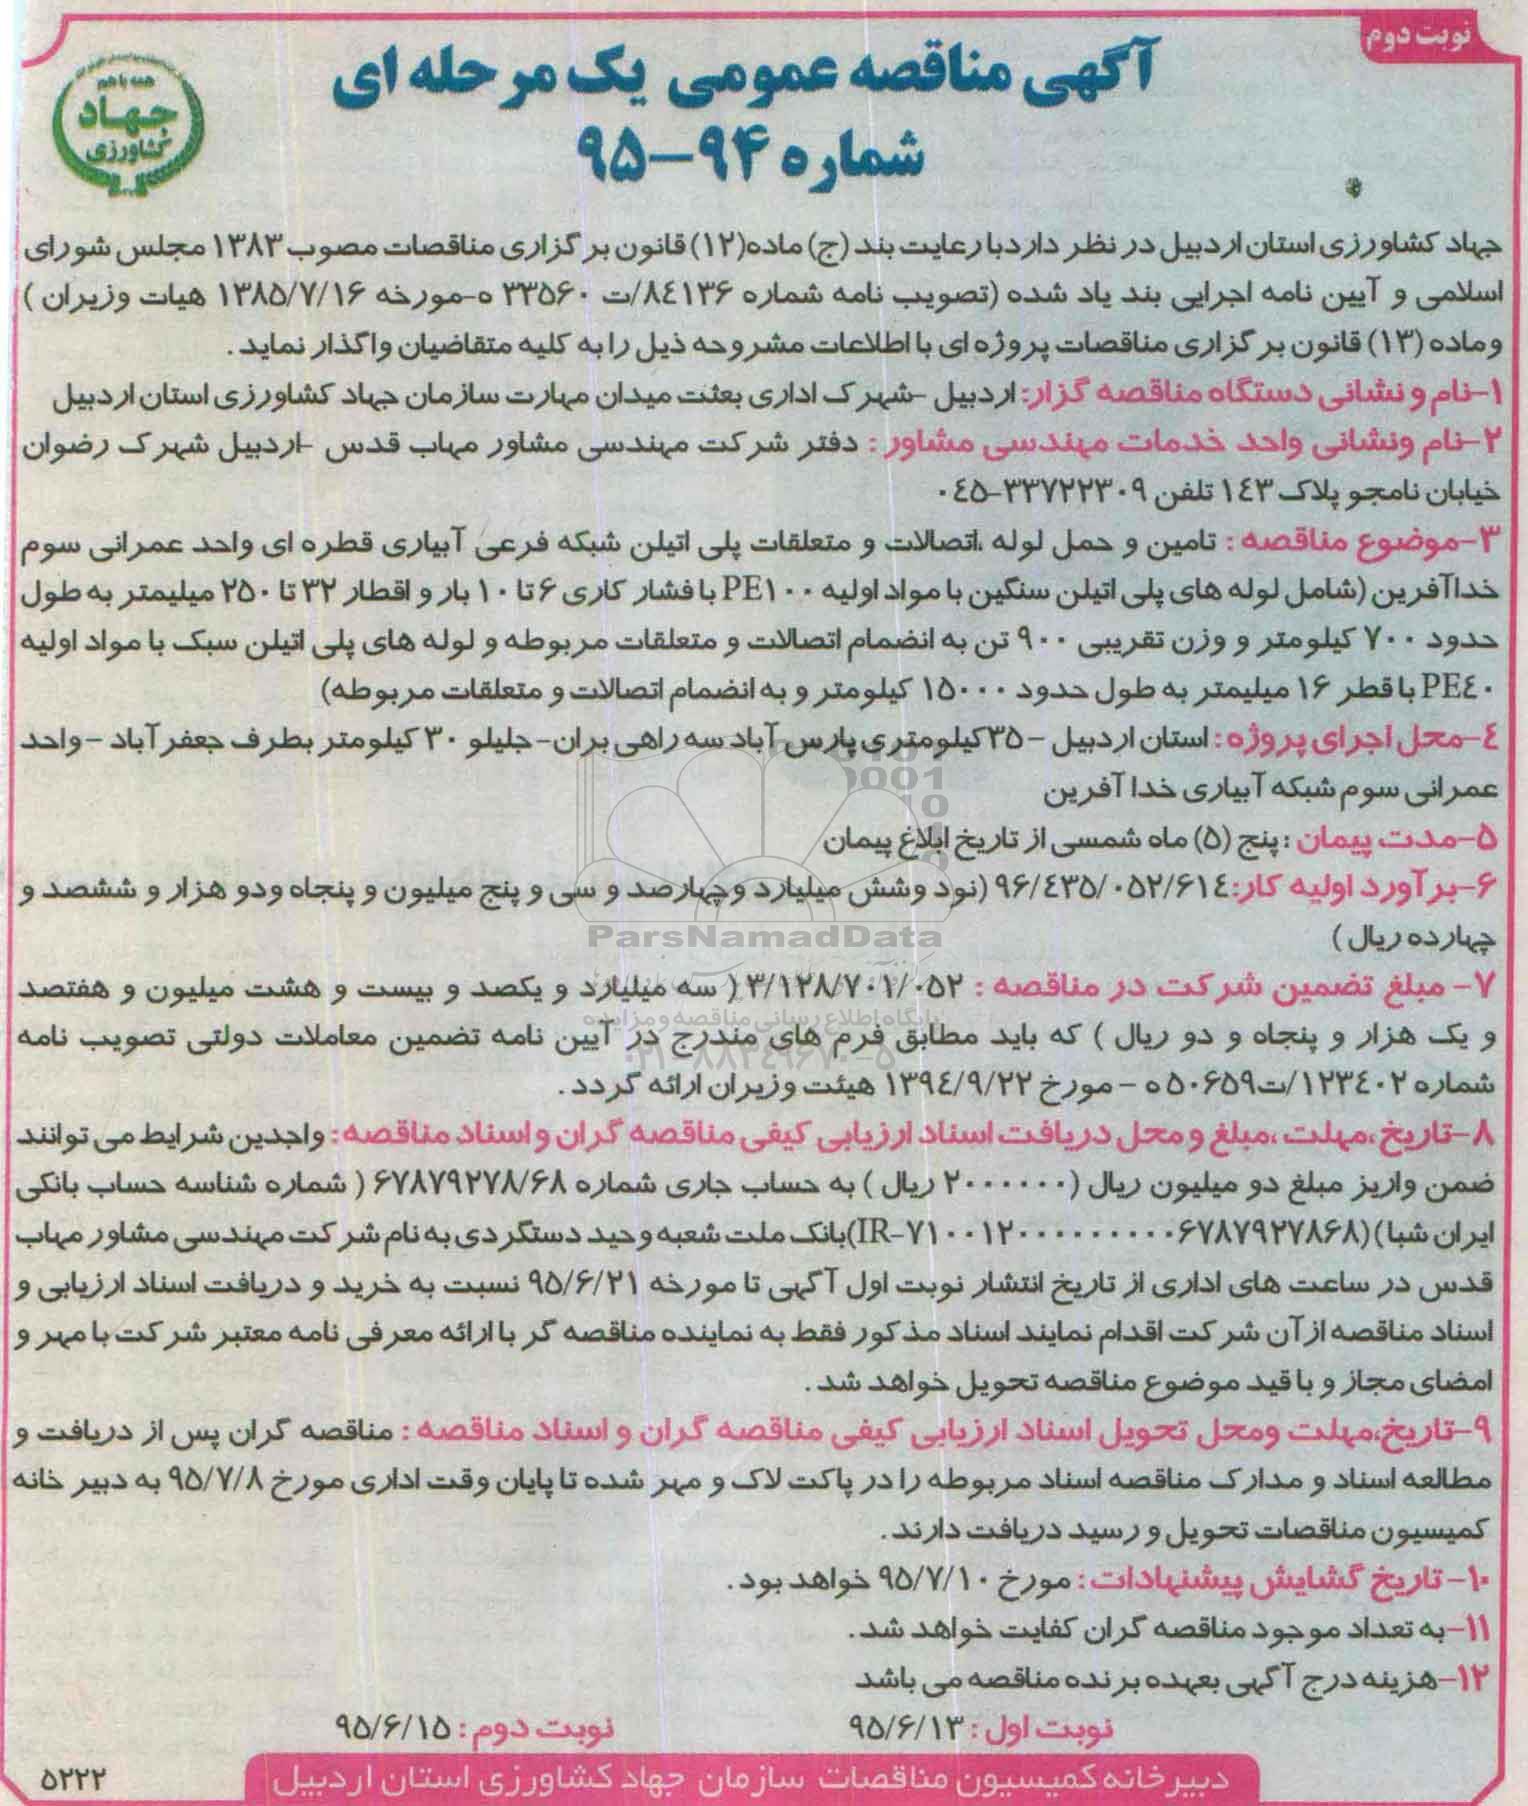 نوبت دوم
آگهی مناقصه عمومی یک مرحله ای
شماره ۹۴-۹۵
همه با هم
جهاد
کشاورزی
جهاد کشاورزی استان اردبیل در نظر دارد با رعایت بند (ج) ماده(۱۲) قانون برگزاری مناقصات مصوب ۱۳۸۳ مجلس شورای
اسلامی و آیین نامه اجرایی بند یاد شده (تصویب نامه شماره ۸٤۱۳۶/ت ۳۳۵۶۰ ه-مورخه ۱۳۸۵/۷/۱۶ هیات وزیران )
وماده (۱۳) قانون برگزاری مناقصات پروژه ای با اطلاعات مشروحه ذیل را به کلیه متقاضیان واگذار نماید .
۱-نام و نشانی دستگاه مناقصه گزار: اردبیل -شهرک اداری بعثت میدان مهارت سازمان جهاد کشاورزی استان اردبیل
۲-نام ونشانی واحد خدمات مهندسی مشاور : دفتر شرکت مهندسی مشاور مهاب قدس -اردبیل شهرک رضوان
خیابان نامجو پلاک ۱٤۳ تلفن ۳۳۷۲۲۳۰۹-۰٤۵
۳-موضوع مناقصه : تامین و حمل لوله ،اتصالات و متعلقات پلی اتیلن شبکه فرعی آبیاری قطره ای واحد عمرانی سوم
خداآفرین (شامل لوله های پلی اتیلن سنگین با مواد اولیه PE۱۰۰ با فشار کاری ۶ تا ۱۰ بار و اقطار ۳۲ تا ۲۵۰ میلیمتر به طول
حدود ۷۰۰ کیلومتر و وزن تقریبی ۹۰۰ تن به انضمام اتصالات و متعلقات مربوطه و لوله های پلی اتیلن سبک با مواد اولیه
PE٤۰ با قطر ۱۶ میلیمتر به طول حدود ۱۵۰۰۰ کیلومتر و به انضمام اتصالات و متعلقات مربوطه)
٤-محل اجرای پروژه : استان اردبیل - ۳۵کیلومتری پارس آباد سه راهی بران- جلیلو ۳۰ کیلومتر بطرف جعفرآباد -واحد
عمرانی سوم شبکه آبیاری خدا آفرین
۵-مدت پیمان : پنج (۵) ماه شمسی از تاریخ ابلاغ پیمان
۶-برآورد اولیه کار: ۹۶/٤۳۵/۰۵۲/۶۱٤ (نود وشش میلیارد وچهارصد و سی و پنج میلیون و پنجاه ودو هزار و ششصد و
چهارده ریال )
۷- مبلغ تضمین شرکت در مناقصه : ۳/۱۲۸/۷۰۱/۰۵۲ ( سه میلیارد و یکصد و بیست و هشت میلیون و هفتصد
و یک هزار و پنجاه و دو ریال ) که باید مطابق فرم های مندرج در آیین نامه تضمین معاملات دولتی تصویب نامه
شماره ۱۲۳٤۰۲/ت۵۰۶۵۹ ه - مورخ ۱۳۹٤/۹/۲۲ هیئت وزیران ارائه گردد .
۸-تاریخ ،مهلت ،مبلغ و محل دریافت اسناد ارزیابی کیفی مناقصه گران و اسناد مناقصه: واجدین شرایط می توانند
ضمن واریز مبلغ دو میلیون ریال (۲۰۰۰۰۰۰ ریال ) به حساب جاری شماره ۶۷۸۷۹۲۷۸/۶۸ ( شماره شناسه حساب بانکی
ایران شبا) (IR-۷۱۰۰۱۲۰۰۰۰۰۰۰۰۰۰۶۷۸۷۹۲۷۸۶۸)بانک ملت شعبه وحید دستگردی به نام شرکت مهندسی مشاور مهاب
قدس در ساعت های اداری از تاریخ انتشار نوبت اول آگهی تا مورخه ۹۵/۶/۲۱ نسبت به خرید و دریافت اسناد ارزیابی و
اسناد مناقصه از آن شرکت اقدام نمایند اسناد مذکور فقط به نماینده مناقصه گر با ارائه معرفی نامه معتبر شرکت با مهر و
امضای مجاز و با قید موضوع مناقصه تحویل خواهد شد .
۹-تاریخ،مهلت ومحل تحویل اسناد ارزیابی کیفی مناقصه گران و اسناد مناقصه : مناقصه گران پس از دریافت و
مطالعه اسناد و مدارک مناقصه اسناد مربوطه را در پاکت لاک و مهر شده تا پایان وقت اداری مورخ ۹۵/۷/۸ به دبیر خانه
کمیسیون مناقصات تحویل و رسید دریافت دارند .
۱۰- تاریخ گشایش پیشنهادات : مورخ ۹۵/۷/۱۰ خواهد بود .
۱۱-به تعداد موجود مناقصه گران کفایت خواهد شد .
۱۲-هزینه درج آگهی بعهده برنده مناقصه می باشد
نوبت اول : ۹۵/۶/۱۳ نوبت دوم : ۹۵/۶/۱۵
دبیرخانه کمیسیون مناقصات سازمان جهاد کشاورزی استان اردبیل
۵۲۲۲
ParsNamadData
پایگاه اطلاع رسانی مناقصه و مزایده
۰۲۱-۸۸۳۴۹۶۷۰-۵